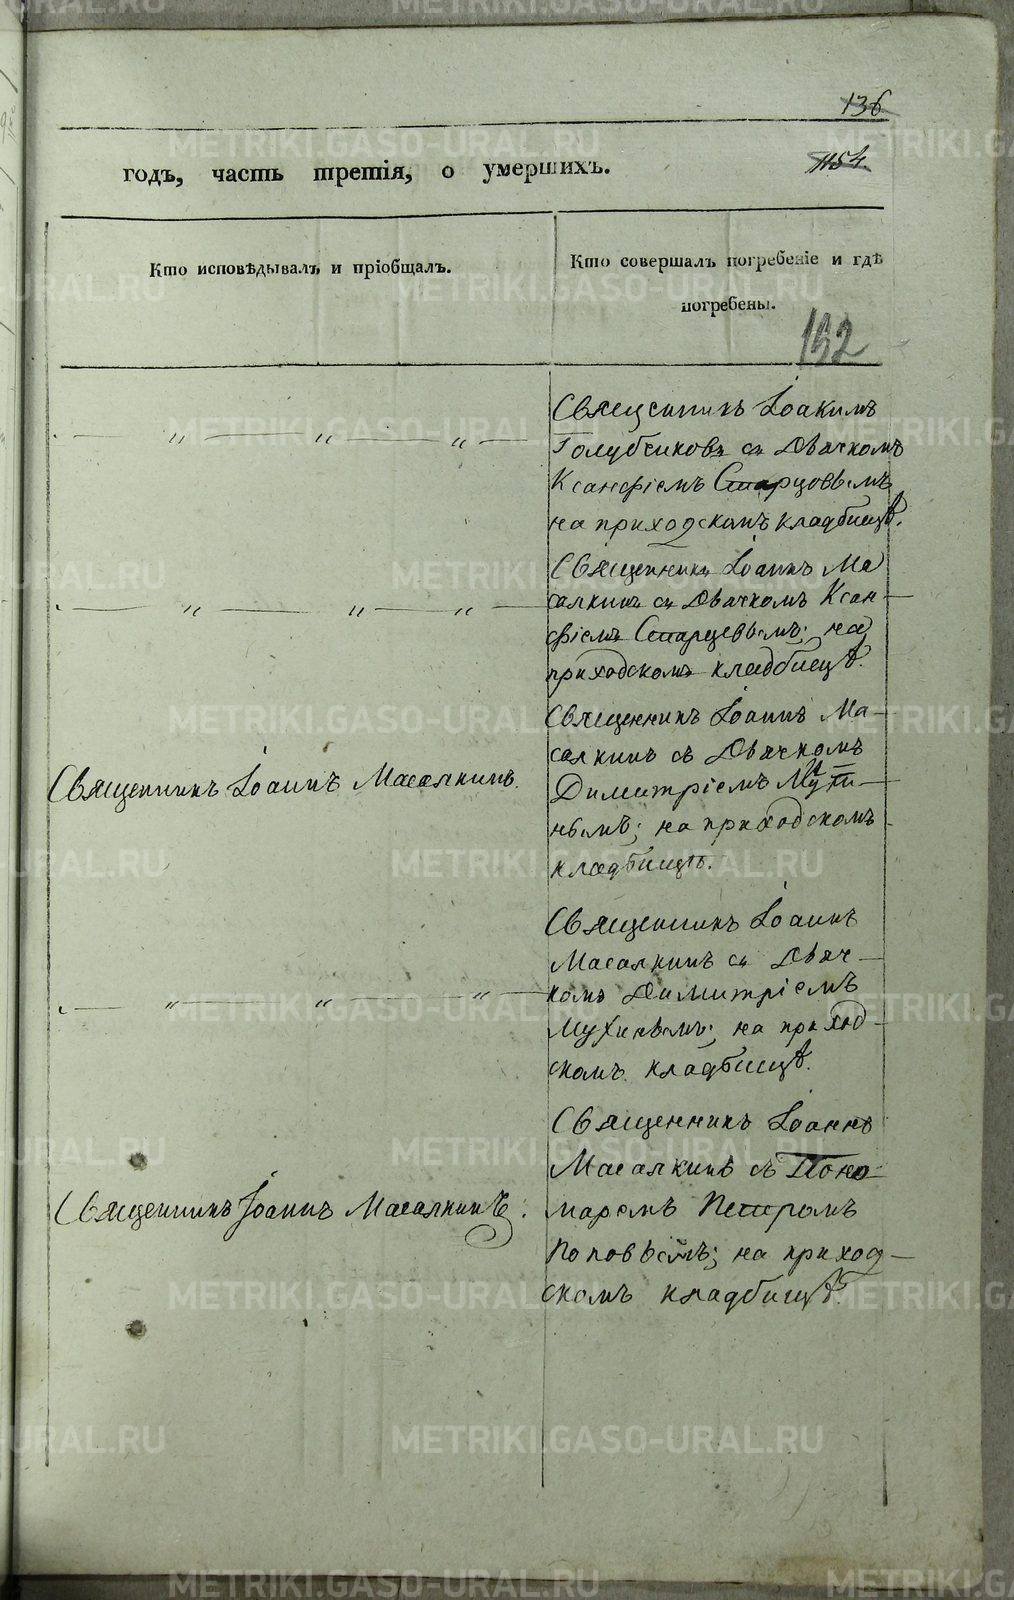 136
1154.
годъ, часть третія, о умершихъ.
Кто исповѣдывалъ и пріобщалъ.
Кто совершалъ погребеніе и гдѣ
погребены.
152
Священникъ Іоакимъ
Голубчиковъ съ Дьячкомъ
Ксанфіемъ Старцовымъ
на приходскомъ кладбищѣ.
Священникъ Іоаннъ Ма
салкинъ съ Дьячкомъ Ксан-
фіемъ Старцевымъ; на
приходскомъ кладбищѣ.
Священникъ Іоаннъ Масалкинъ.
Священникъ Іоаннъ Ма-
салкинъ съ Дьячкомъ
Димитріемъ Мухи-
нымъ; на приходскомъ
кладбищѣ.
Священникъ Іоаннъ
Масалкинъ съ Дьяч-
комъ Димитріемъ
Мухинымъ; на приход-
скомъ кладбищѣ.
Священникъ Іоаннъ Масалкинъ.
Священникъ Іоаннъ
Масалкинъ съ Поно-
маремъ Петромъ
Поповымъ; на приход-
скомъ кладбищѣ.
METRIKI.GASO-URAL.RU